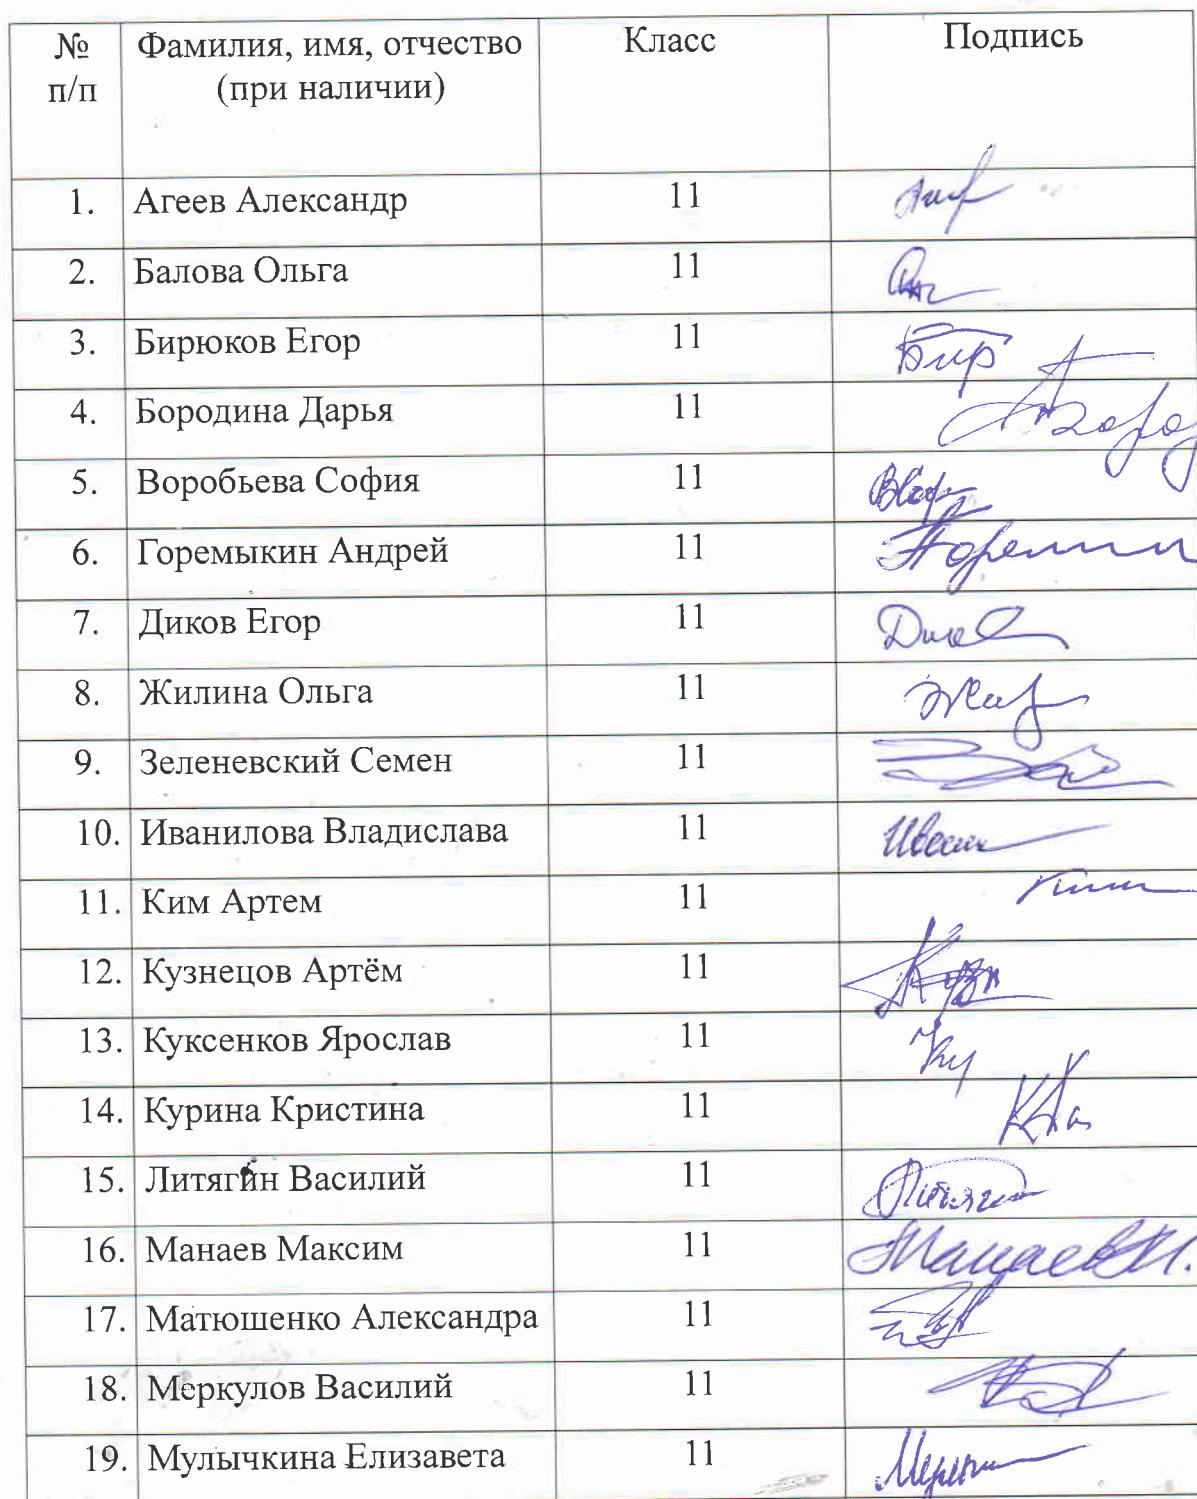 № п/п Фамилия, имя, отчество (при наличии) Класс Подпись
1. Агеев Александр 11
2. Балова Ольга 11
3. Бирюков Егор 11 Бир
4. Бородина Дарья 11
5. Воробьева София 11
6. Горемыкин Андрей 11
7. Диков Егор 11
8. Жилина Ольга 11
9. Зеленевский Семен 11
10. Иванилова Владислава 11
11. Ким Артем 11
12. Кузнецов Артём 11
13. Куксенков Ярослав 11
14. Курина Кристина 11
15. Литягин Василий 11
16. Манаев Максим 11 Манаев М.
17. Матюшенко Александра 11
18. Меркулов Василий 11
19. Мулычкина Елизавета 11